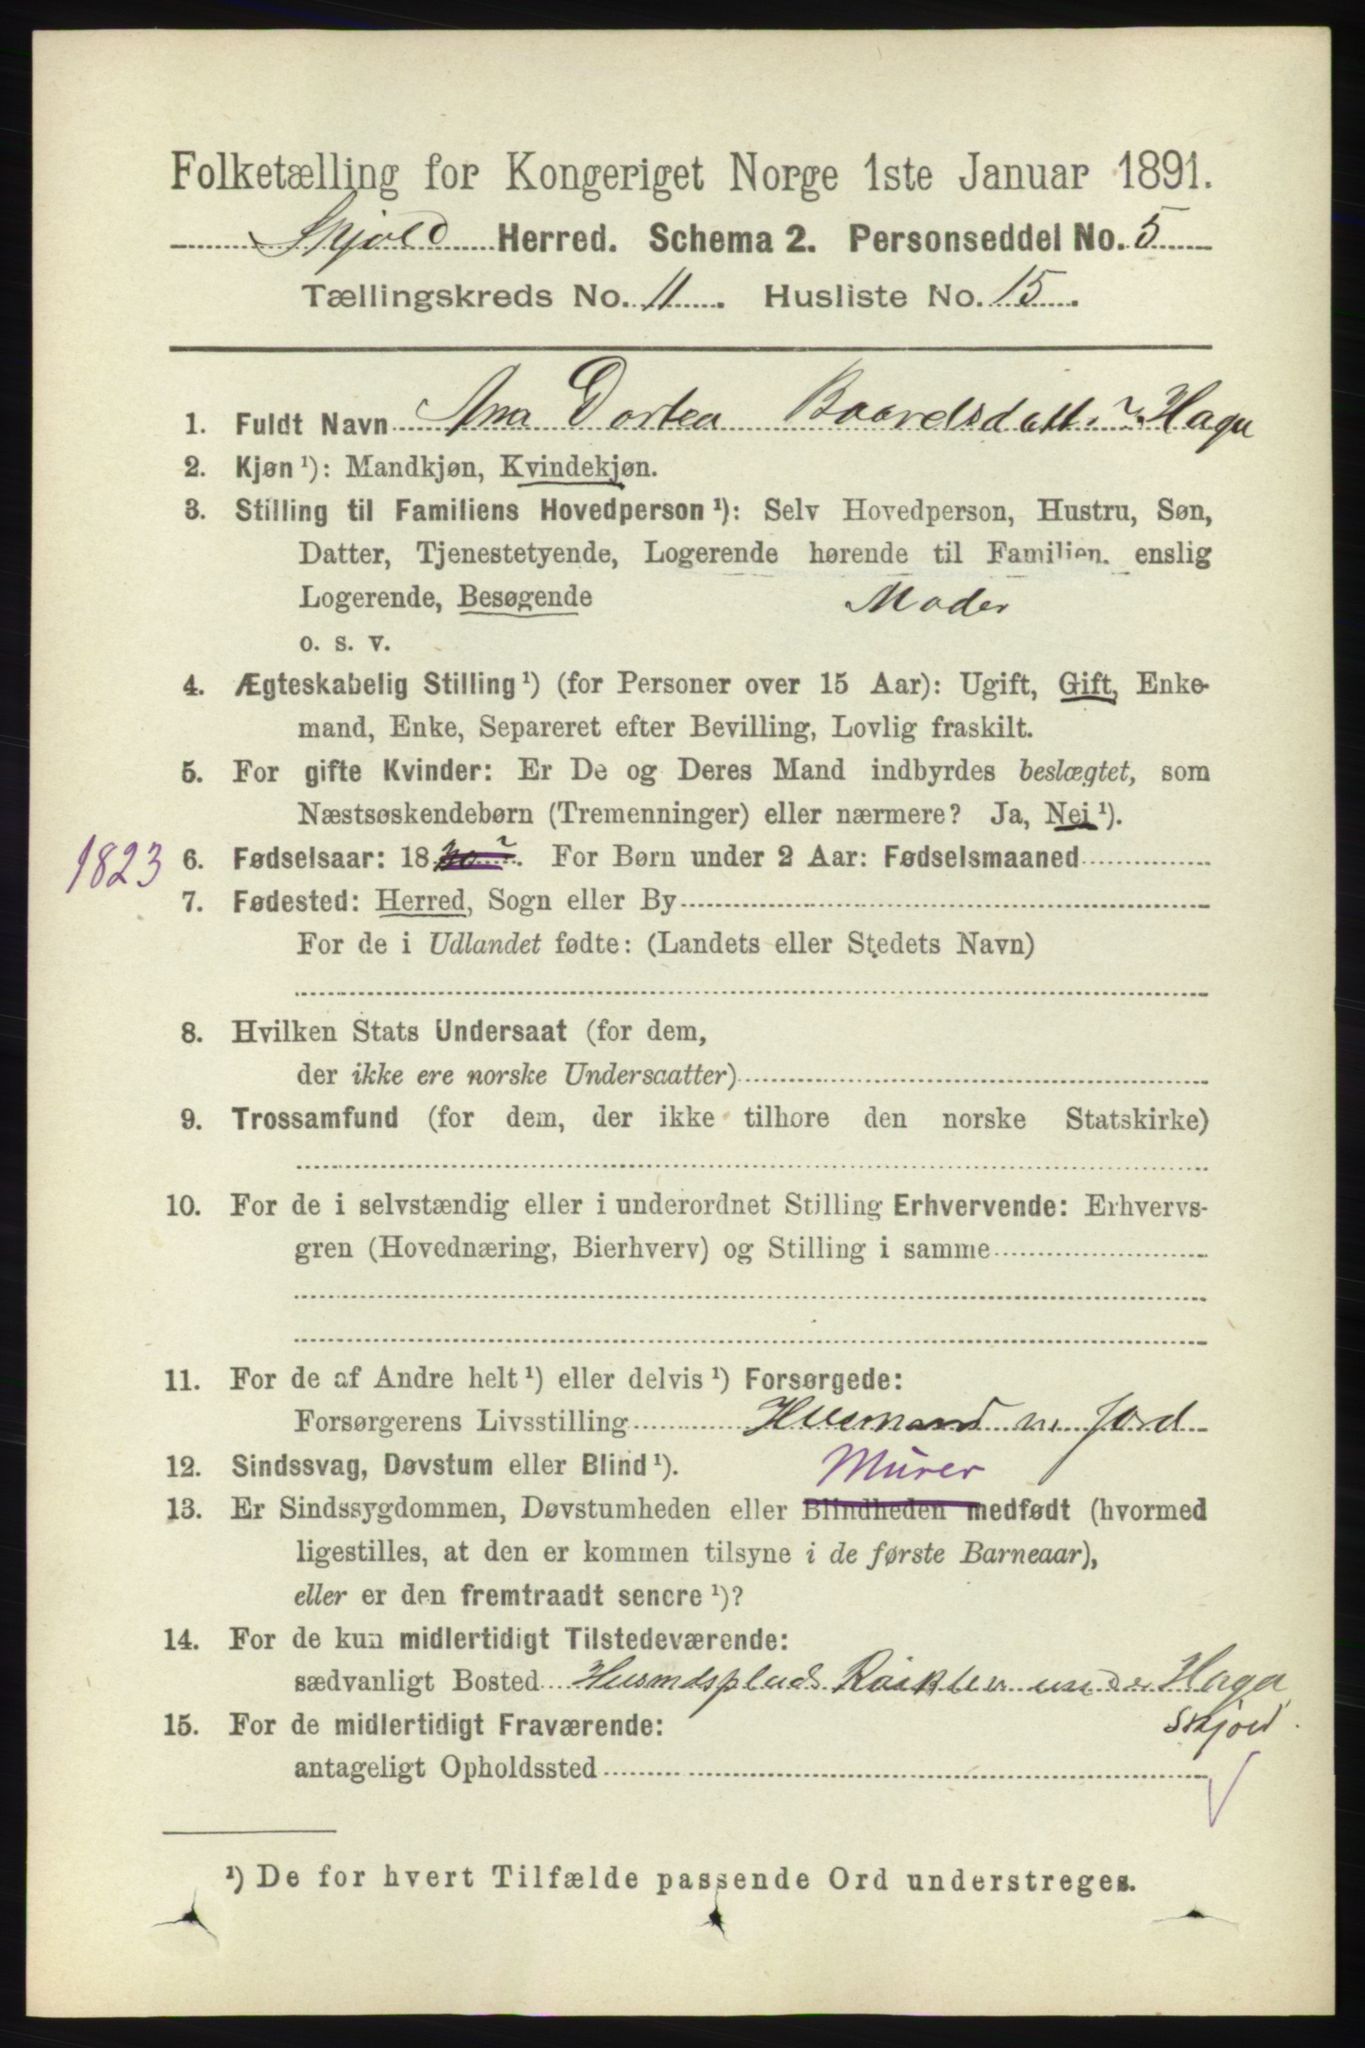 Folketælling for Kongeriget Norge 1ste Januar 1891.
Skjold Herred. Schema 2. Personseddel No. 5
Tællingskreds No. 11. Husliste No. 15.
1. Fuldt Navn Ana Dortea Baardsdatt. Haga
2. Kjøn ¹): Mandkjøn, Kvindekjøn.
3. Stilling til Familiens Hovedperson ¹): Selv Hovedperson, Hustru, Søn,
Datter, Tjenestetyende, Logerende hørende til Familien. enslig
Logerende, Besøgende Moder
o. s. v.
4. Ægteskabelig Stilling ¹) (for Personer over 15 Aar): Ugift, Gift, Enke-
mand, Enke, Separeret efter Bevilling, Lovlig fraskilt.
5. For gifte Kvinder: Er De og Deres Mand indbyrdes beslægtet, som
Næstsøskendebørn (Tremenninger) eller nærmere? Ja, Nei ¹).
1823 6. Fødselsaar: 18 30 ?. For Børn under 2 Aar: Fødselsmaaned
7. Fødested: Herred, Sogn eller By
For de i Udlandet fødte: (Landets eller Stedets Navn)
8. Hvilken Stats Undersaat (for dem,
der ikke ere norske Undersaatter)
9. Trossamfund (for dem, der ikke tilhore den norske Statskirke)
10. For de i selvstændig eller i underordnet Stilling Erhvervende: Erhvervs-
gren (Hovednæring, Bierhverv) og Stilling i samme
11. For de af Andre helt ¹) eller delvis ¹) Forsørgede:
Forsørgerens Livsstilling Husmand m. Jord
12. Sindssvag, Døvstum eller Blind ¹). Murer
13. Er Sindssygdommen, Døvstumheden eller Blindheden medfødt (hvormed
ligestilles, at den er kommen tilsyne i de første Barneaar),
eller er den fremtraadt sencre ¹)?
14. For de kun midlertidigt Tilstedeværende:
sædvanligt Bosted Husmdsplads under Haga
Skjold.
15. For de midlertidigt Fraværende:
antageligt Opholdssted
¹) De for hvert Tilfælde passende Ord understreges.